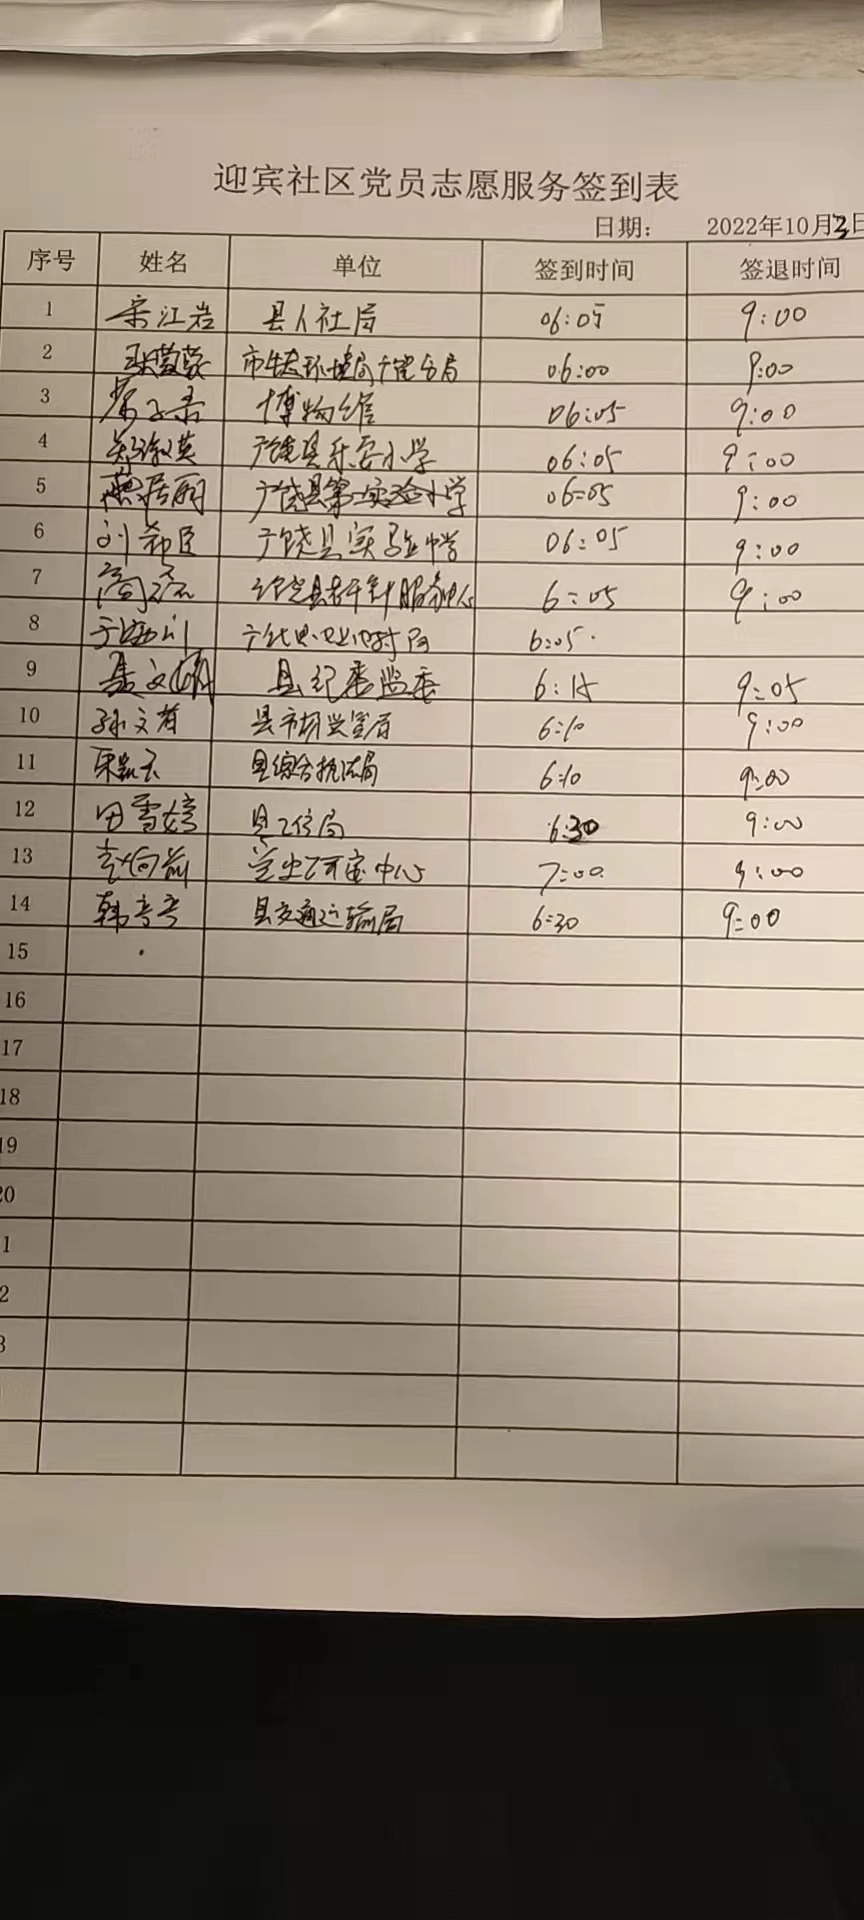 迎宾社区党员志愿服务签到表
日期： 2022年10月3日
序号 姓名 单位 签到时间 签退时间
1 宋江岩 县人社局 06:05 9:00
2 市生态环境局广饶分局 06:00 9:00
3 博物馆 06:05 9:00
4 郑淑英 广饶县乐安小学 06:05 9:00
5 燕居丽 广饶县第二实验小学 06:05 9:00
6 刘希臣 广饶县实验中学 06:05 9:00
7 服务中心 6:05 9:00
8 6:05
9 县纪委监委 6:15 9:05
10 孙文省 县市场监管局 6:10 9:00
11 县综合执法局 6:10 9:00
12 田雪婷 县工信局 6:30 9:00
13 李向前 中心 7:00 9:00
14 韩音音 县交通运输局 6:30 9:00
15
16
17
18
19
20
1
2
3